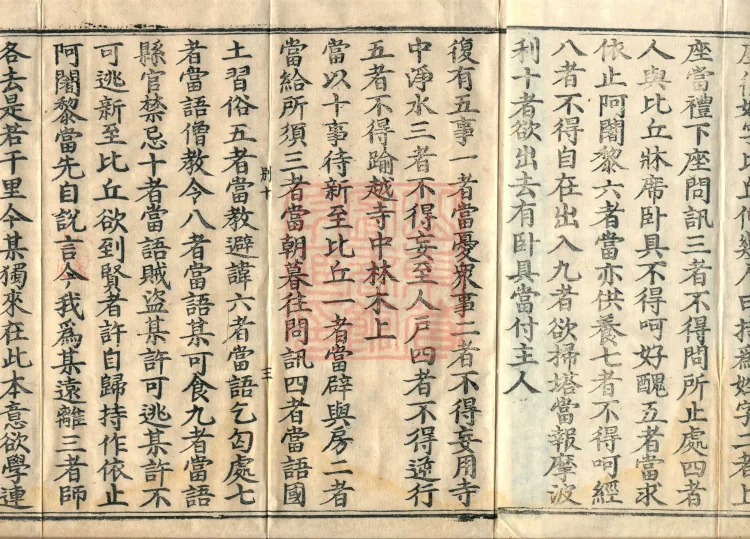 座當禮下座問訊三者不得問所止處四者
人與比丘牀席卧具不得呵好醜五者當求
依止阿闍黎六者當亦供養七者不得呵經
八者不得自在出入九者欲掃塔當報摩波
利十者欲出去有卧具當付主人
復有五事一者當憂衆事二者不得妄用寺
中淨水三者不得妄至人戶四者不得逆行
五者不得踰越寺中林木上
當以十事待新至比丘一者當辟與房二者
當給所須三者當朝暮往問訊四者當語國
別十 三
土習俗五者當教避諱六者當語乞匃處七
者當語僧教令八者當語某可食九者當語
縣官禁忌十者當語賊盜某許可逃某許不
可逃新至比丘欲到賢者許自歸持作依止
阿闍黎當先自說言今我爲某遠離三者師
各去是若干里今某獨來在此本意欲學連